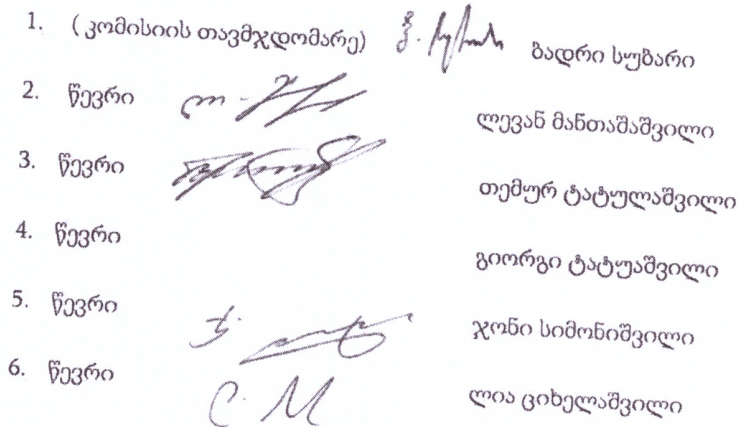 1. (კომისიის თავმჯდომარე) ბადრი სუბარი
2. წევრი ლევან მანთაშაშვილი
3. წევრი თემურ ტატულაშვილი
4. წევრი გიორგი ტატუაშვილი
5. წევრი ჯონი სიმონიშვილი
6. წევრი ლია ციხელაშვილი